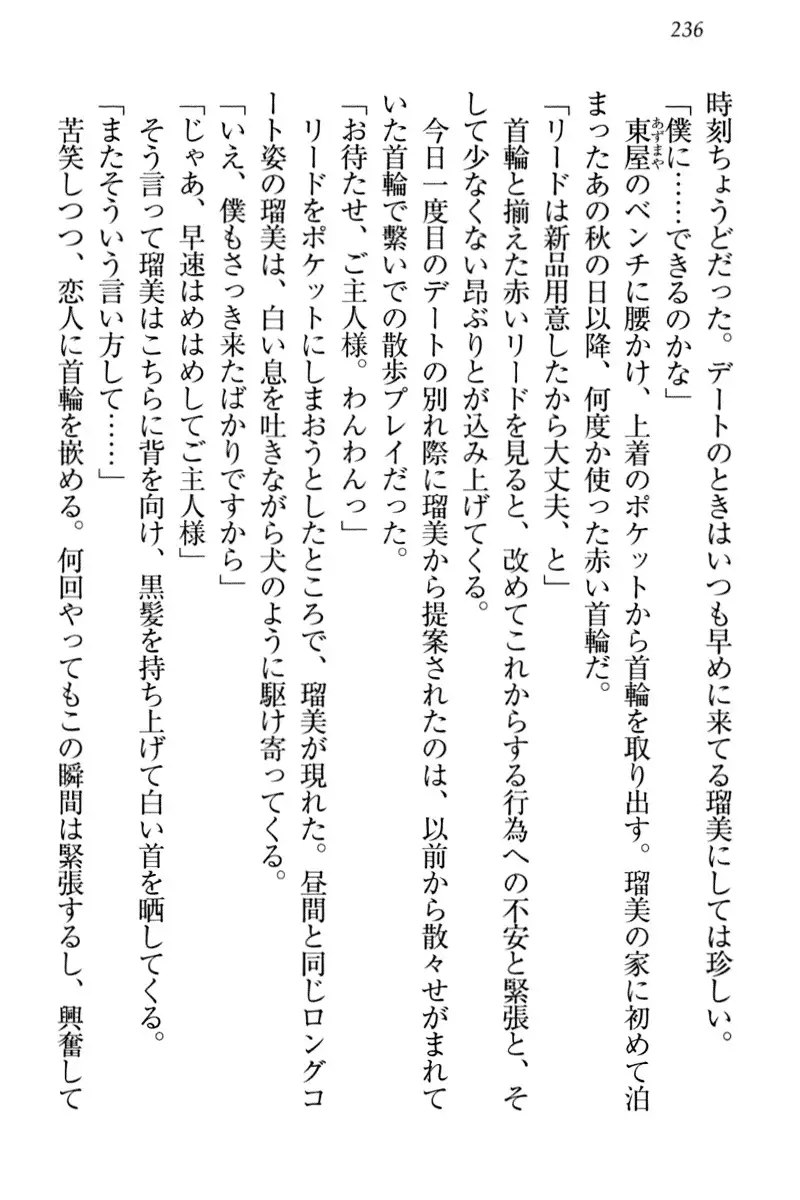 236
時刻ちょうどだった。デートのときはいつも早めに来てる瑠美にしては珍しい。
「僕に……できるのかな」
東屋のベンチに腰かけ、上着のポケットから首輪を取り出す。瑠美の家に初めて泊
あずまや
まったあの秋の日以降、何度か使った赤い首輪だ。
「リードは新品用意したから大丈夫、と」
首輪と揃えた赤いリードを見ると、改めてこれからする行為への不安と緊張と、そ
して少なくない昂ぶりとが込み上げてくる。
今日一度目のデートの別れ際に瑠美から提案されたのは、以前から散々せがまれて
いた首輪で繋いでの散歩プレイだった。
「お待たせ、ご主人様。わんわんっ」
リードをポケットにしまおうとしたところで、瑠美が現れた。昼間と同じロングコ
ート姿の瑠美は、白い息を吐きながら犬のように駆け寄ってくる。
「いえ、僕もさっき来たばかりですから」
「じゃあ、早速はめはめしてご主人様」
そう言って瑠美はこちらに背を向け、黒髪を持ち上げて白い首を晒してくる。
「またそういう言い方して……」
苦笑しつつ、恋人に首輪を嵌める。何回やってもこの瞬間は緊張するし、興奮して